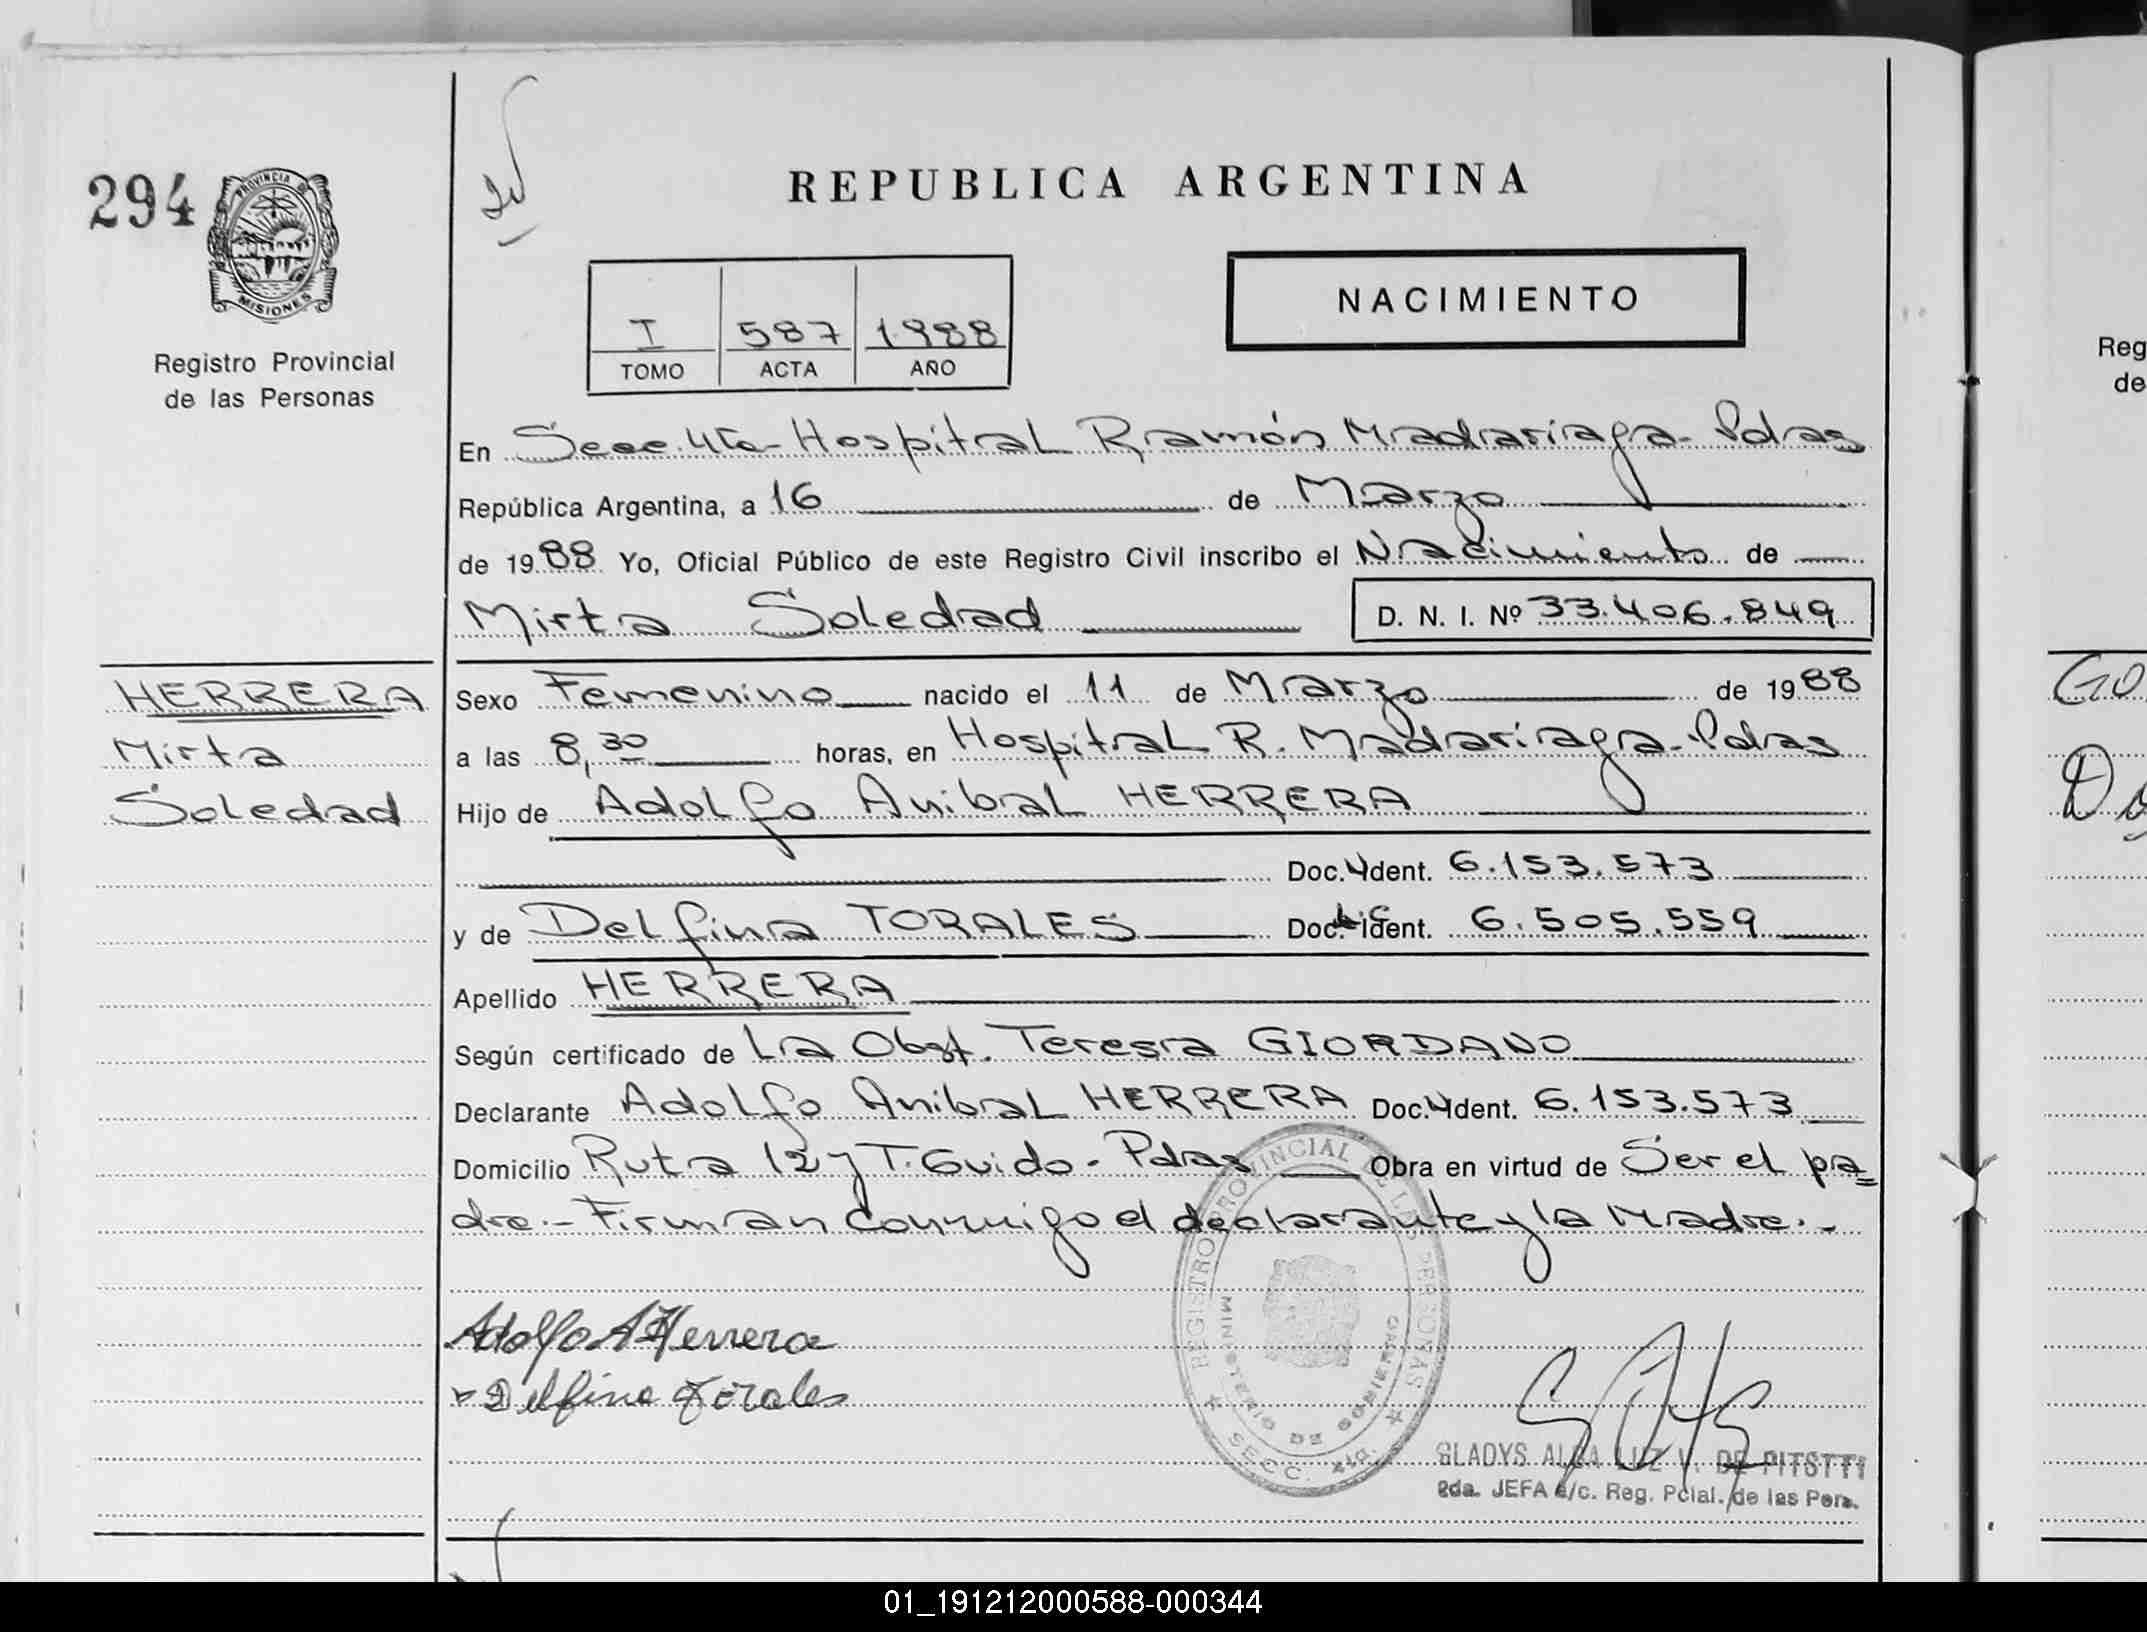 294
PROVINCIA DE
MISIONES
Registro Provincial
de las Personas
REPUBLICA ARGENTINA
NACIMIENTO
I 587 1988
TOMO ACTA AÑO
En Secc. 4ta - Hospital Ramón Madariaga - Pdas
República Argentina, a 16 de Marzo
de 1988 Yo, Oficial Público de este Registro Civil inscribo el Nacimiento de
Mirta Soledad D. N. I. Nº 33.406.849
HERRERA
Mirta
Soledad
Sexo Femenino nacido el 11 de Marzo de 1988
a las 8,30 horas, en Hospital R. Madariaga - Pdas
Hijo de Adolfo Anibal HERRERA
Doc. Ident. 6.153.573
y de Delfina TORALES Doc. Ident. 6.505.559
Apellido HERRERA
Según certificado de La Obst. Teresa GIORDANO
Declarante Adolfo Anibal HERRERA Doc. Ident. 6.153.573
Domicilio Ruta 12 y T. Guido - Pdas Obra en virtud de Ser el pa=
dre.- Firman conmigo el declarante y la Madre.-
Adolfo A Herrera
Delfina Torales
REGISTRO PROVINCIAL DE LAS PERSONAS
MINISTERIO DE GOBIERNO
SECC. 4ta.
GLADYS ALBA LUZ V. DE
2da. JEFA a/c. Reg. Pcial. de las Pers.
Reg
de
GO
01_191212000588-000344